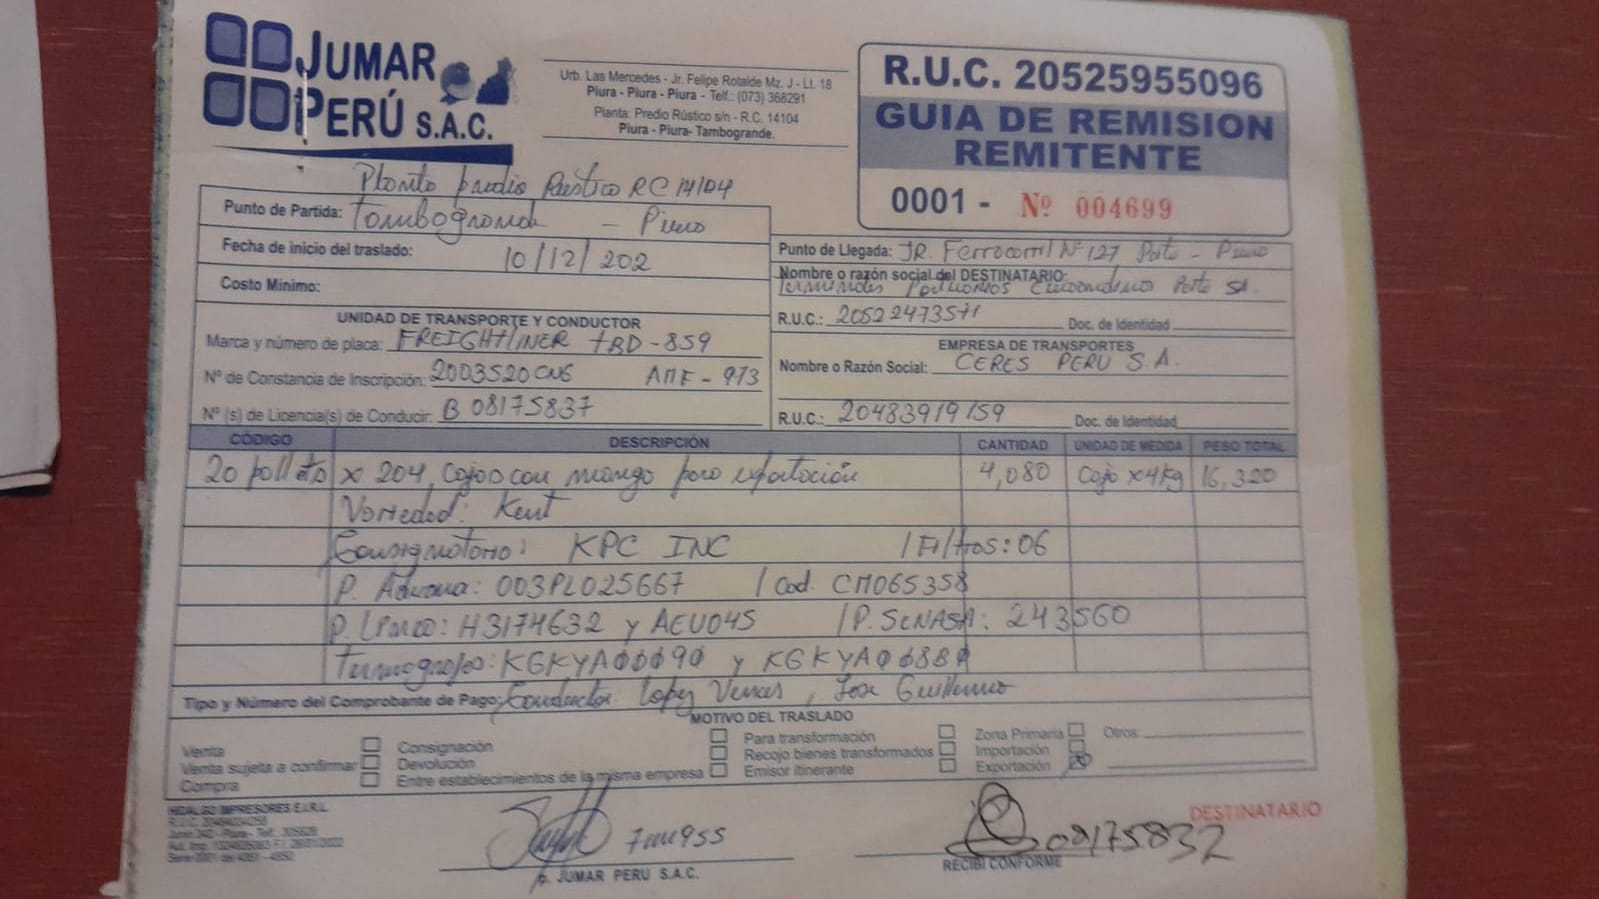 JUMAR
PERÚ S.A.C.
Urb. Las Mercedes - Jr. Felipe Rotalde Mz. J - Lt. 18
Piura - Piura - Piura - Telf.: (073) 368291
Planta: Predio Rústico s/n - R.C. 14104
Piura - Piura- Tambogrande.
R.U.C. 20525955096
GUIA DE REMISION
REMITENTE
0001 - Nº 004699
Planta predio Rustico RC 14104
Punto de Partida: Tambogrande - Piura
Fecha de inicio del traslado: 10/12/202
Costo Mínimo:
Punto de Llegada: JR. Ferrocarril Nº 127 Paita - Piura
Nombre o razón social del DESTINATARIO:
Terminales Portuarios Euroandinos Paita SA.
R.U.C.: 20522473571 Doc. de Identidad
UNIDAD DE TRANSPORTE Y CONDUCTOR
Marca y número de placa: FREIGHTLINER TBD-859
Nº de Constancia de Inscripción: 2003520CNG AMF-973
Nº (s) de Licencia(s) de Conducir: B 08175837
EMPRESA DE TRANSPORTES
Nombre o Razón Social: CERES PERU S.A.
R.U.C.: 20483919159 Doc. de Identidad
CÓDIGO DESCRIPCIÓN CANTIDAD UNIDAD DE MEDIDA PESO TOTAL
20 pallets x 204 Cajas con mango para exportación 4,080 Caja x4kg 16,320
Variedad: Kent
Consignatario: KPC INC / Filtros: 06
P. Aduana: 003PL025667 / Cod. CM065358
P. Linea: H3174632 y AEU045 / P. SENASA: 243560
Termografos: KGKYA00090 y KGKYA06880
Tipo y Número del Comprobante de Pago: Conductor: Lopez , Jose Guillermo
MOTIVO DEL TRASLADO
Venta
Venta sujeta a confirmar
Compra
Consignación
Devolución
Entre establecimientos de la misma empresa
Para transformación
Recojo bienes transformados
Emisor itinerante
Zona Primaria
Importación
Exportación
Otros
HIDALGO IMPRESORES E.I.R.L.
P. JUMAR PERU S.A.C.
08175832
RECIBI CONFORME
DESTINATARIO